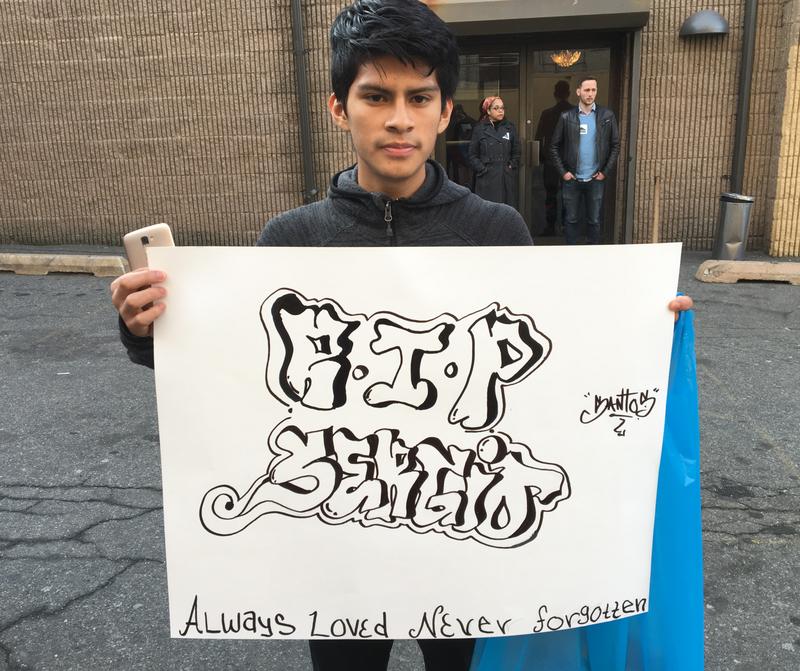 R.I.P
"SANTOS"
SERGIO
Always Loved Never forgotten